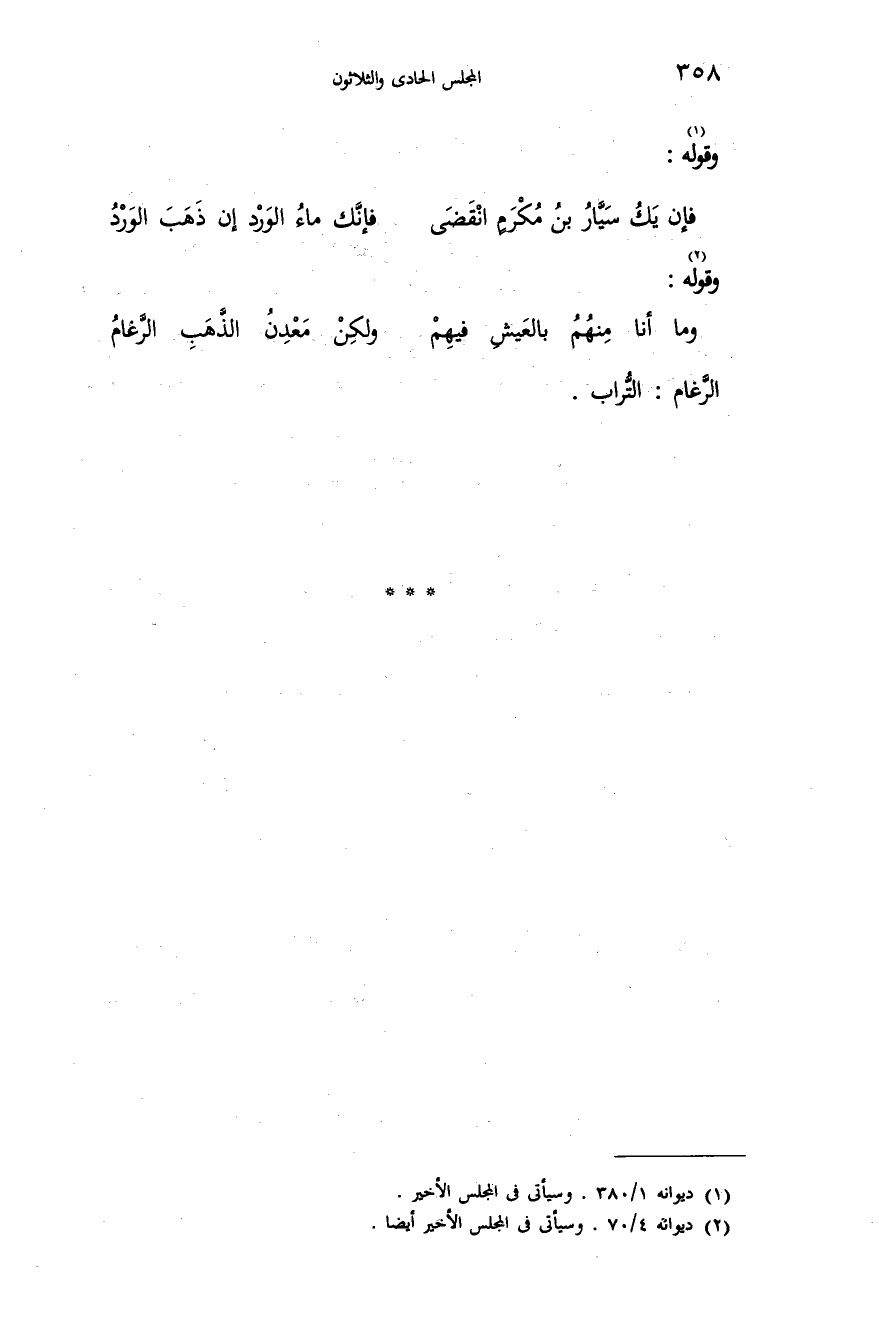 ٣٥٨ المجلس الحادى والثلاثون
(١)
وقوله :
فإن يَكُ سَيَّارُ بنُ مُكْرَمٍ انْقَضَى فإنَّك ماءُ الوَرْد إن ذَهَبَ الوَرْدُ
(٢)
وقوله :
وما أنا مِنهُمُ بالعَيشِ فيهِمْ ولكِنْ مَعْدِنُ الذَّهَبِ الرَّغامُ
الرَّغام : التُّراب .
* * *
(١) ديوانه ٣٨٠/١ . وسيأتى فى المجلس الأخير .
(٢) ديوانه ٧٠/٤ . وسيأتى فى المجلس الأخير أيضا .